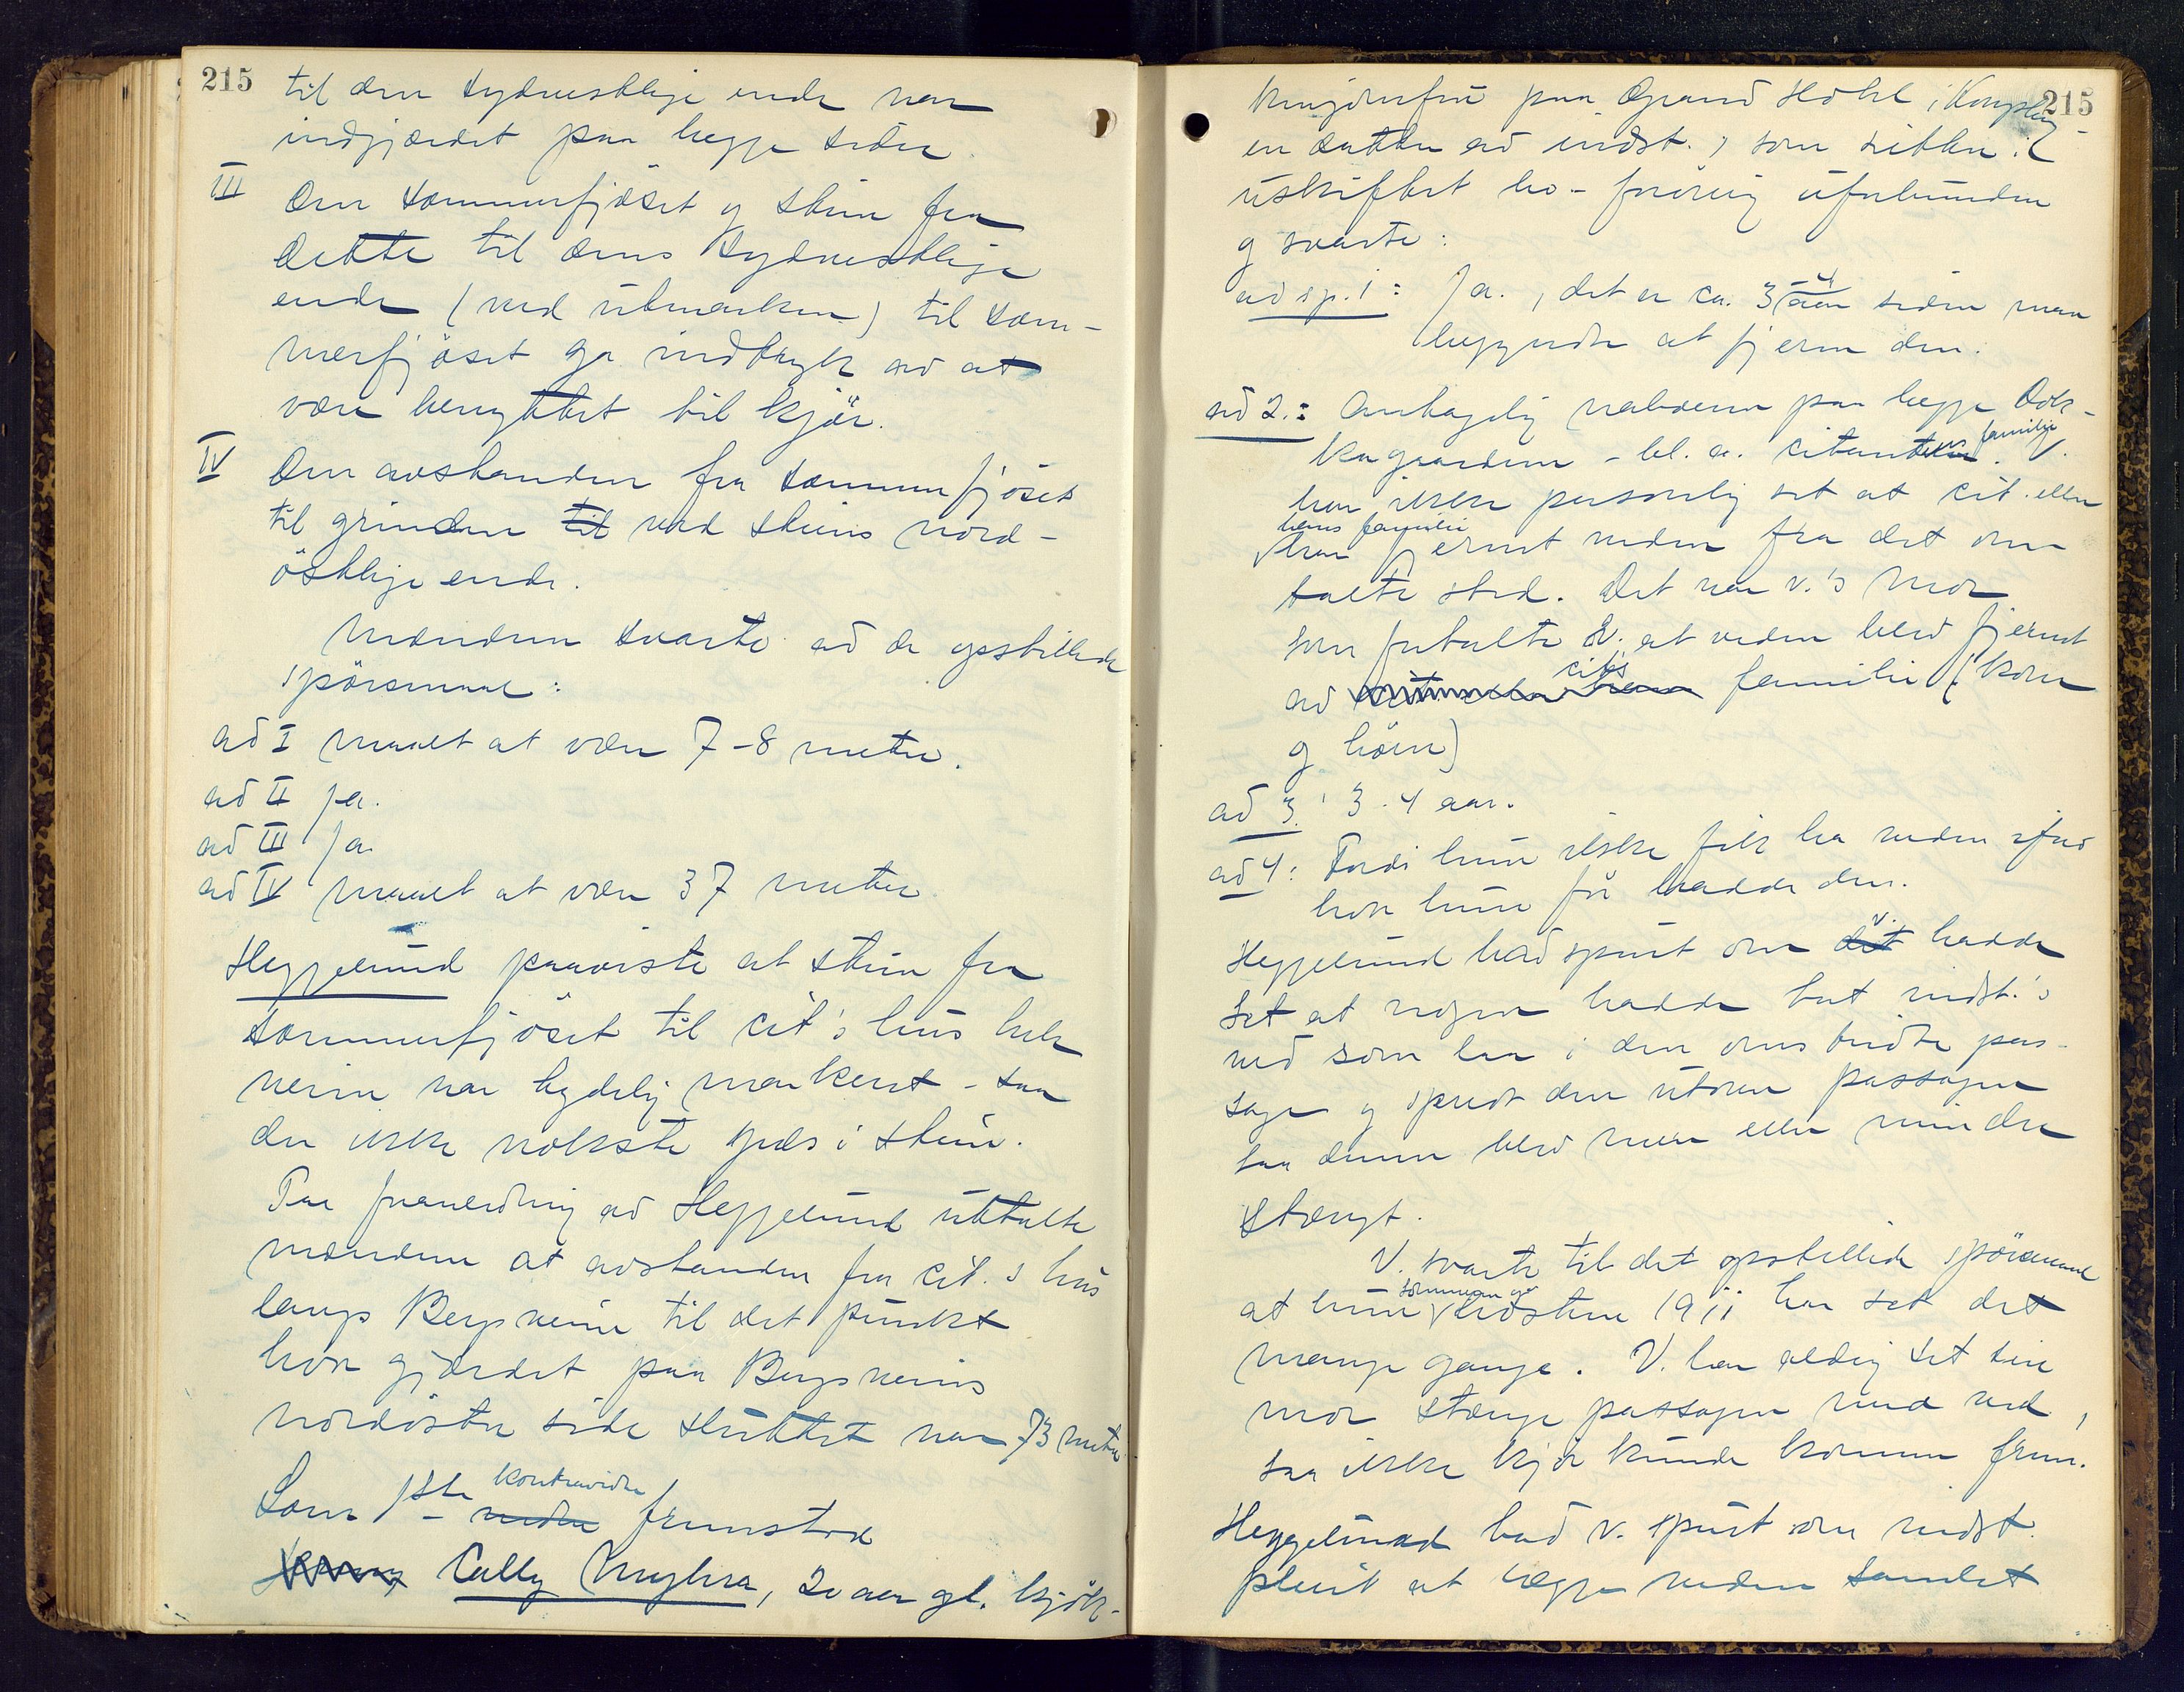 215
til den sydvestlige ende var
indgjærdet paa begge sider.
III Om sommerfjøset og stien fra
dette til dens sydvestlige
ende (ved utmarken) til som-
merfjøset ga indtryk av at
være benyttet til kjør.
IV Om avstanden fra sommerfjøset
til grinden til ved stiens nord-
østlige ende.
Mændene svarte ad de opstillede
spørsmaal:
ad I maalt at være 7-8 meter.
ad II Ja.
ad III Ja.
ad IV maalt at være 37 meter.
Heggelund paaviste at stien fra
sommerfjøset til cit's hus hele
veien var tydelig markert - saa
der ikke vokste græs i stien.
Paa foranledning av Heggelund uttalte
mændene at avstanden fra cit.'s hus
langs Bergsveien til det punkt
hvor gjærdet paa Bergsveiens
nordøstre side sluttet var 73 meter.
Som 1ste - vidne kontravidne fremstod
Cally Myhra, 20 aar gl. kjøk-
215
kenjomfru paa Grand Hotel i Kongsberg
en datter av indst., som sitter i
uskiftet bo - forøvrig uforbunden
og svarte:
ad sp. 1: Ja., det er ca. 3-4 aar siden man
begyndte at fjerne den.
ad 2.: Antagelig naboerne paa begge
gaardene - bl. a. citantens familie. V.
har ikke personlig set at cit. eller
hans familie har fjernet veden fra det om-
talte sted. Det var v.'s mor
som fortalte v. at veden blev fjernet
av cit's familie (kone
og børn)
ad 3: 3-4 aar.
ad 4: Fordi hun ikke fik ha veden i fred
hvor hun før hadde den.
Heggelund bad spurt om det v. hadde
set at nogen hadde tat indst.'s
ved som laa i den omstridte pas-
sage og spredt den utover passagen
saa denne blev mer eller mindre
stængt.
V. svarte til det opstillede spørsmaal
at hun sommeren og høsten 1911 har set det
mange gange. V. har aldrig set sin
mor stænge passagen med ved,
saa ikke kjør kunde komme frem.
Heggelund bad v. spurt om indst.
pleiet at lægge veden samlet